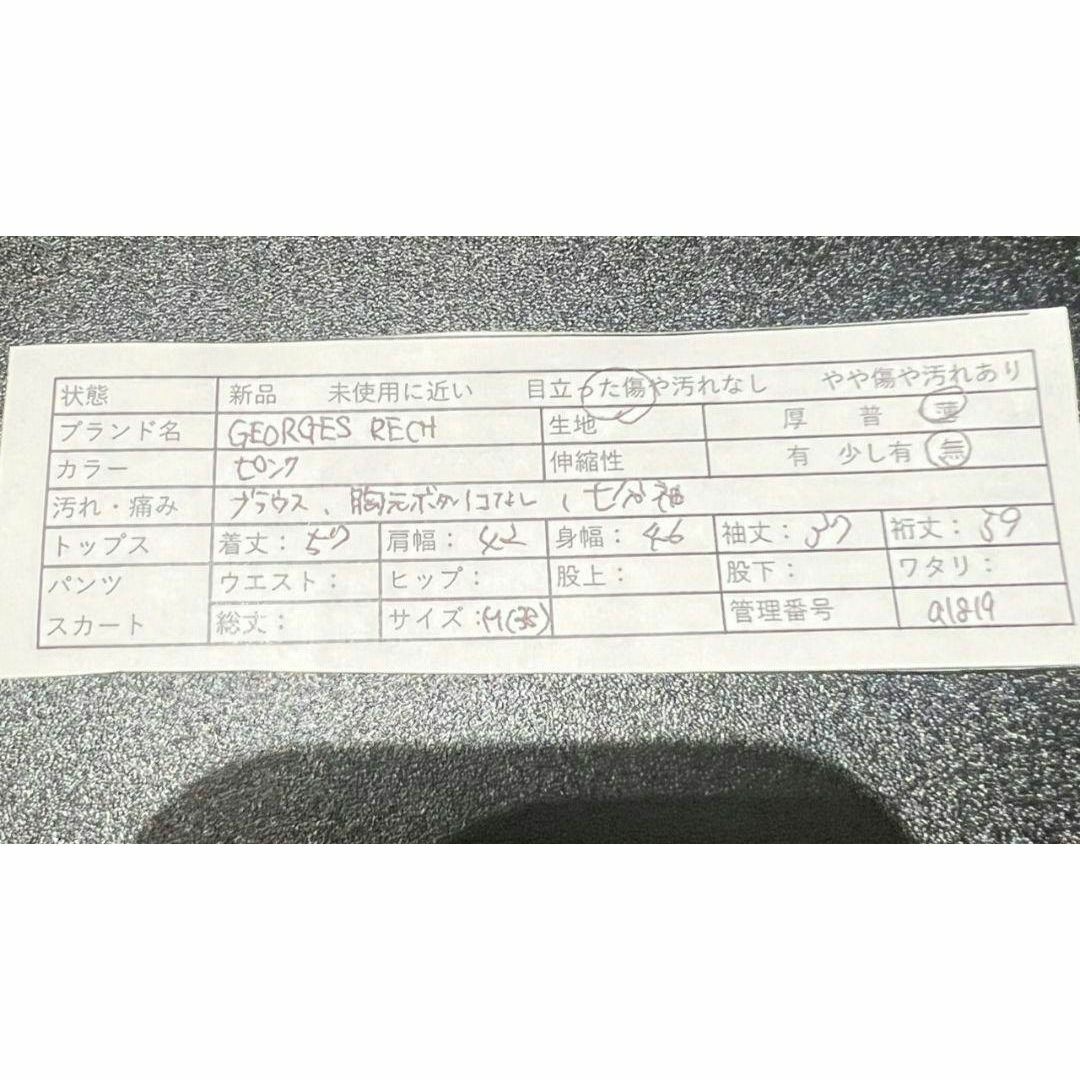 状態 新品 未使用に近い 目立った傷や汚れなし やや傷や汚れあり
ブランド名 GEORGES RECH 生地 厚 普 薄
カラー ピンク 伸縮性 有 少し有 無
汚れ・痛み ブラウス、胸元ボタン1コなし、七分袖
トップス 着丈：57 肩幅：42 身幅：46 袖丈：37 裄丈：59
パンツ ウエスト： ヒップ： 股上： 股下： ワタリ：
スカート 総丈： サイズ：M(38) 管理番号 a1819